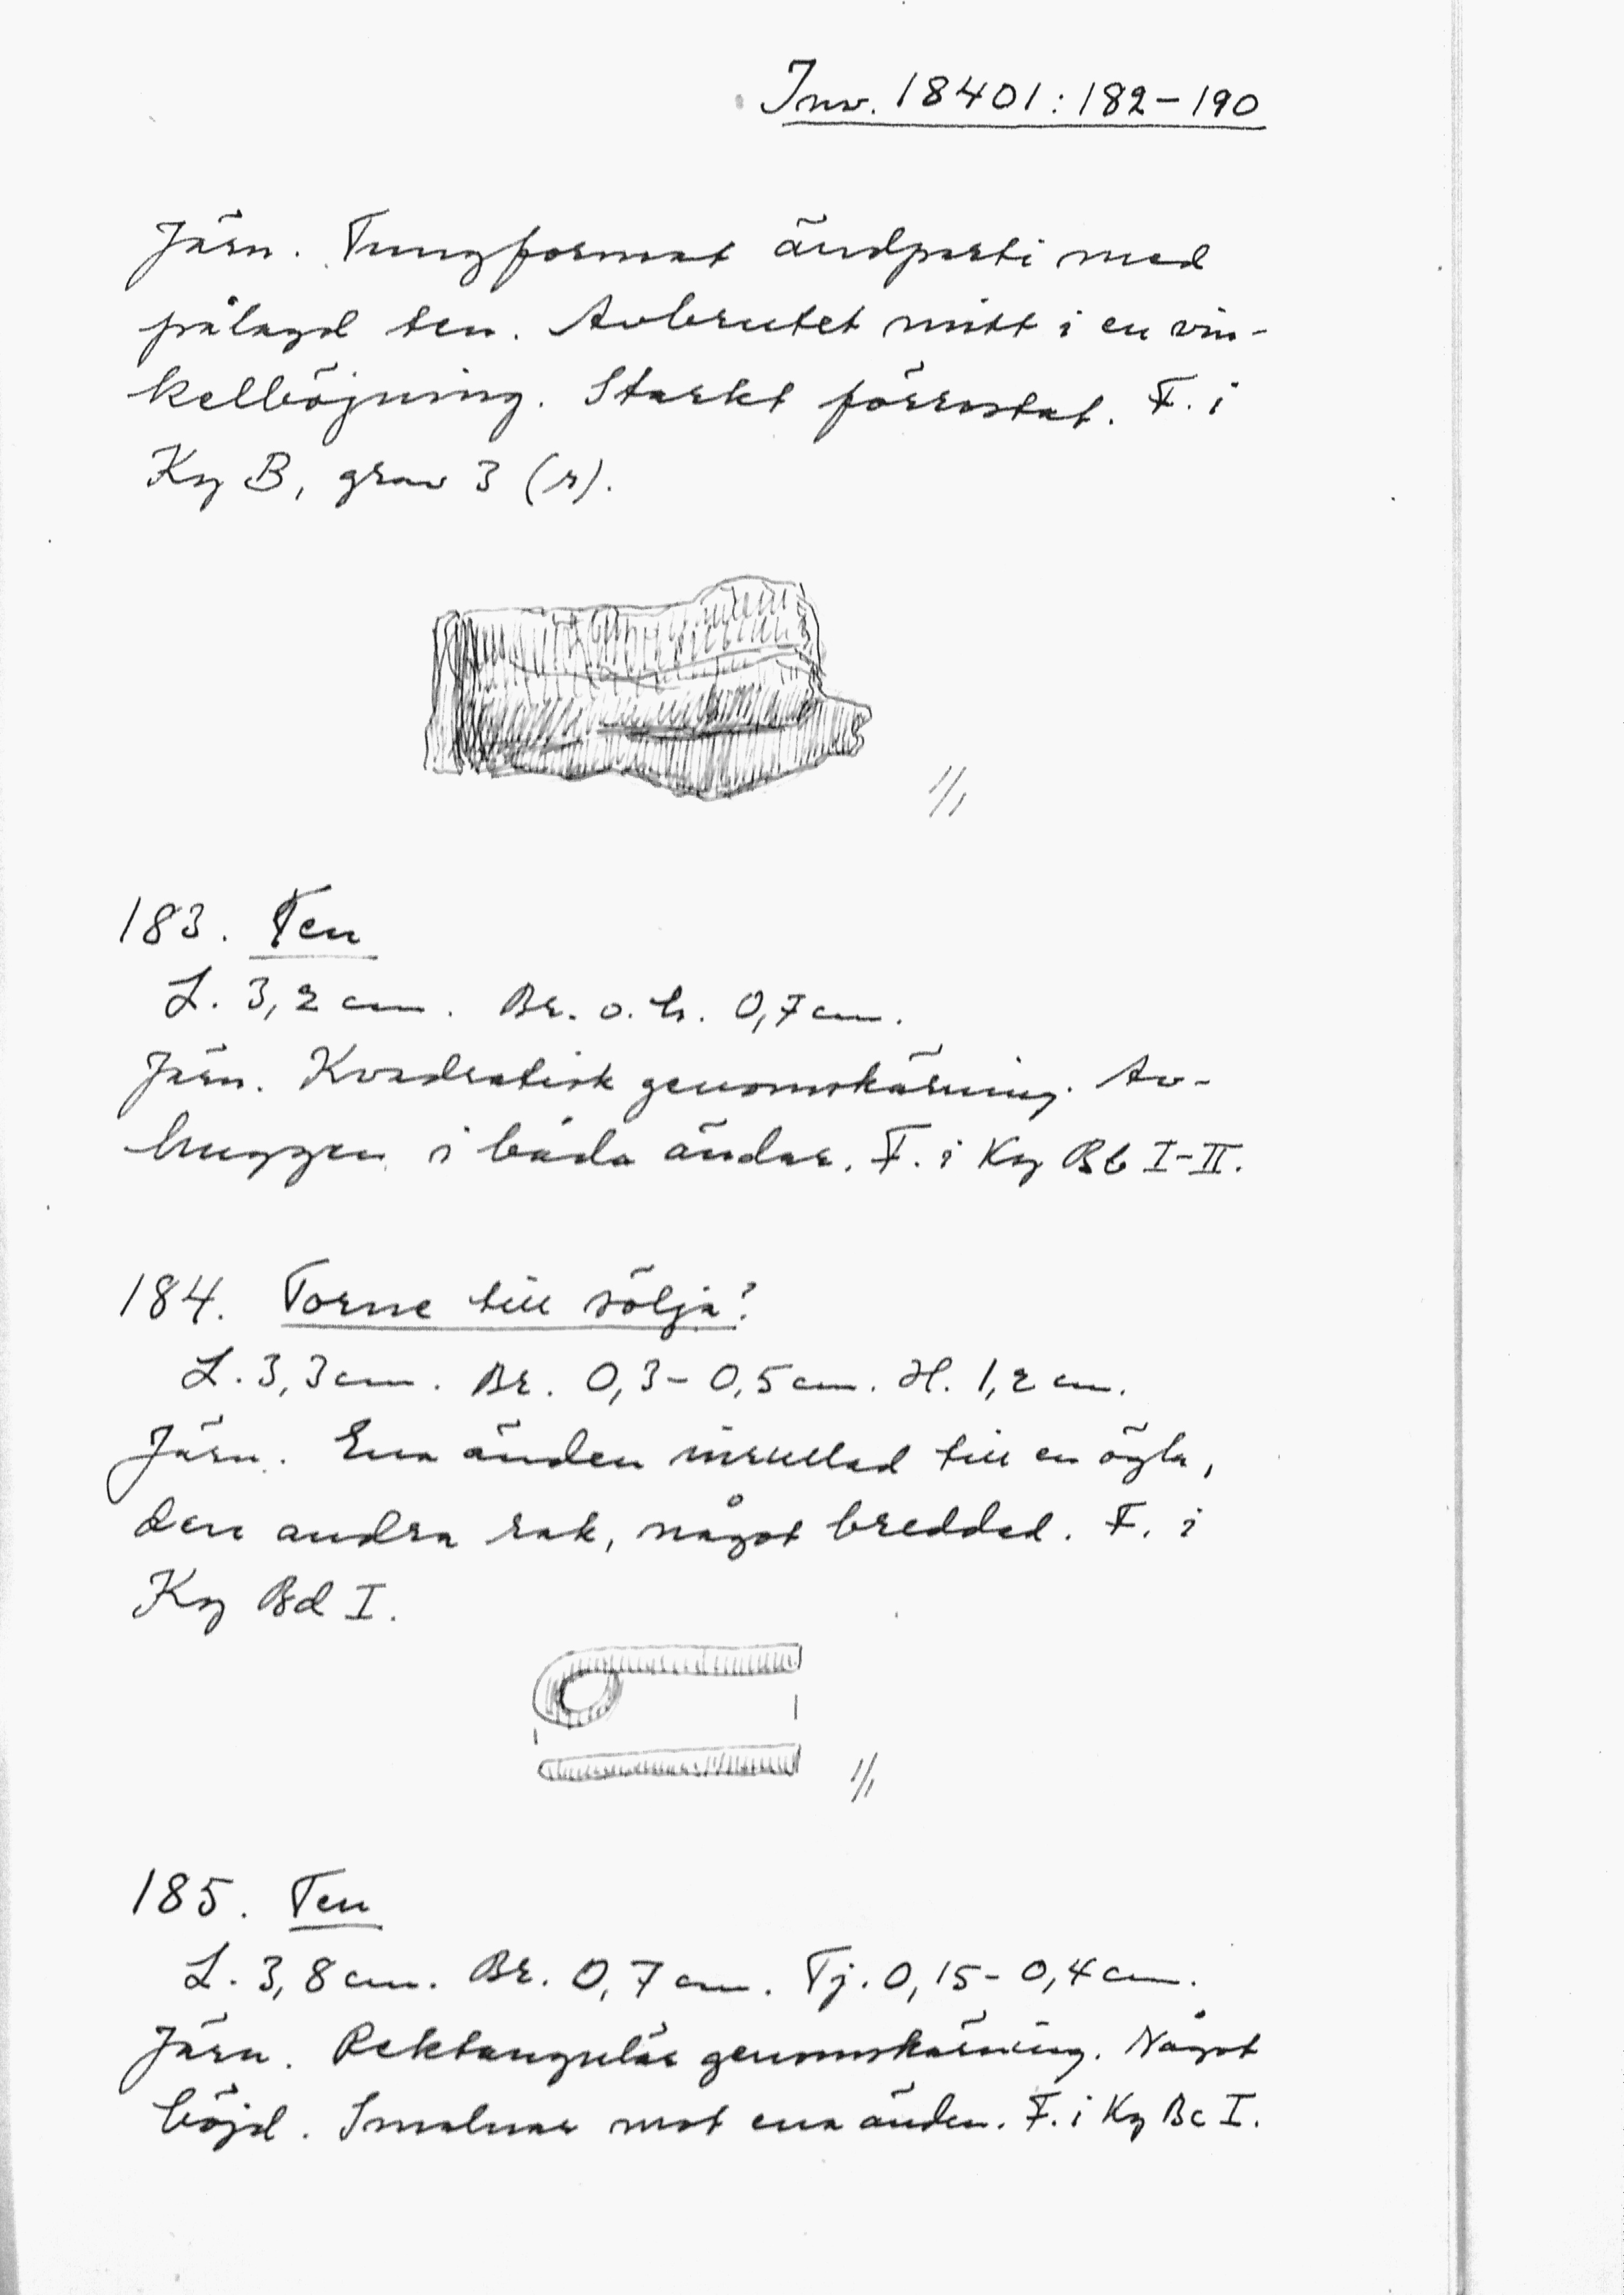 Inv. 18401:182-190
Järn. Tungformat ändparti med
pålagd ten. Avbrutet mitt i en vin-
kelböjning. Starkt förrostat. F. i
Kg B, grav 3 (r).
1/1
183. Ten
L. 3,2 cm. Br. o. h. 0,7 cm.
Järn. Kvadratisk genomskärning. Av-
huggen i båda ändar. F. i Kg Bb I-II.
184. Torne till sölja?
L. 3,3 cm. Br. 0,3-0,5 cm. H. 1,2 cm.
Järn. Ena änden inrullad till en ögla,
den andra rak, något breddad. F. i
Kg Bd I.
1/1
185. Ten
L. 3,8 cm. Br. 0,7 cm. Tj. 0,15-0,4 cm.
Järn. Rektangulär genomskärning. Något
böjd. Smalnar mot ena änden. F. i Kg Bc I.